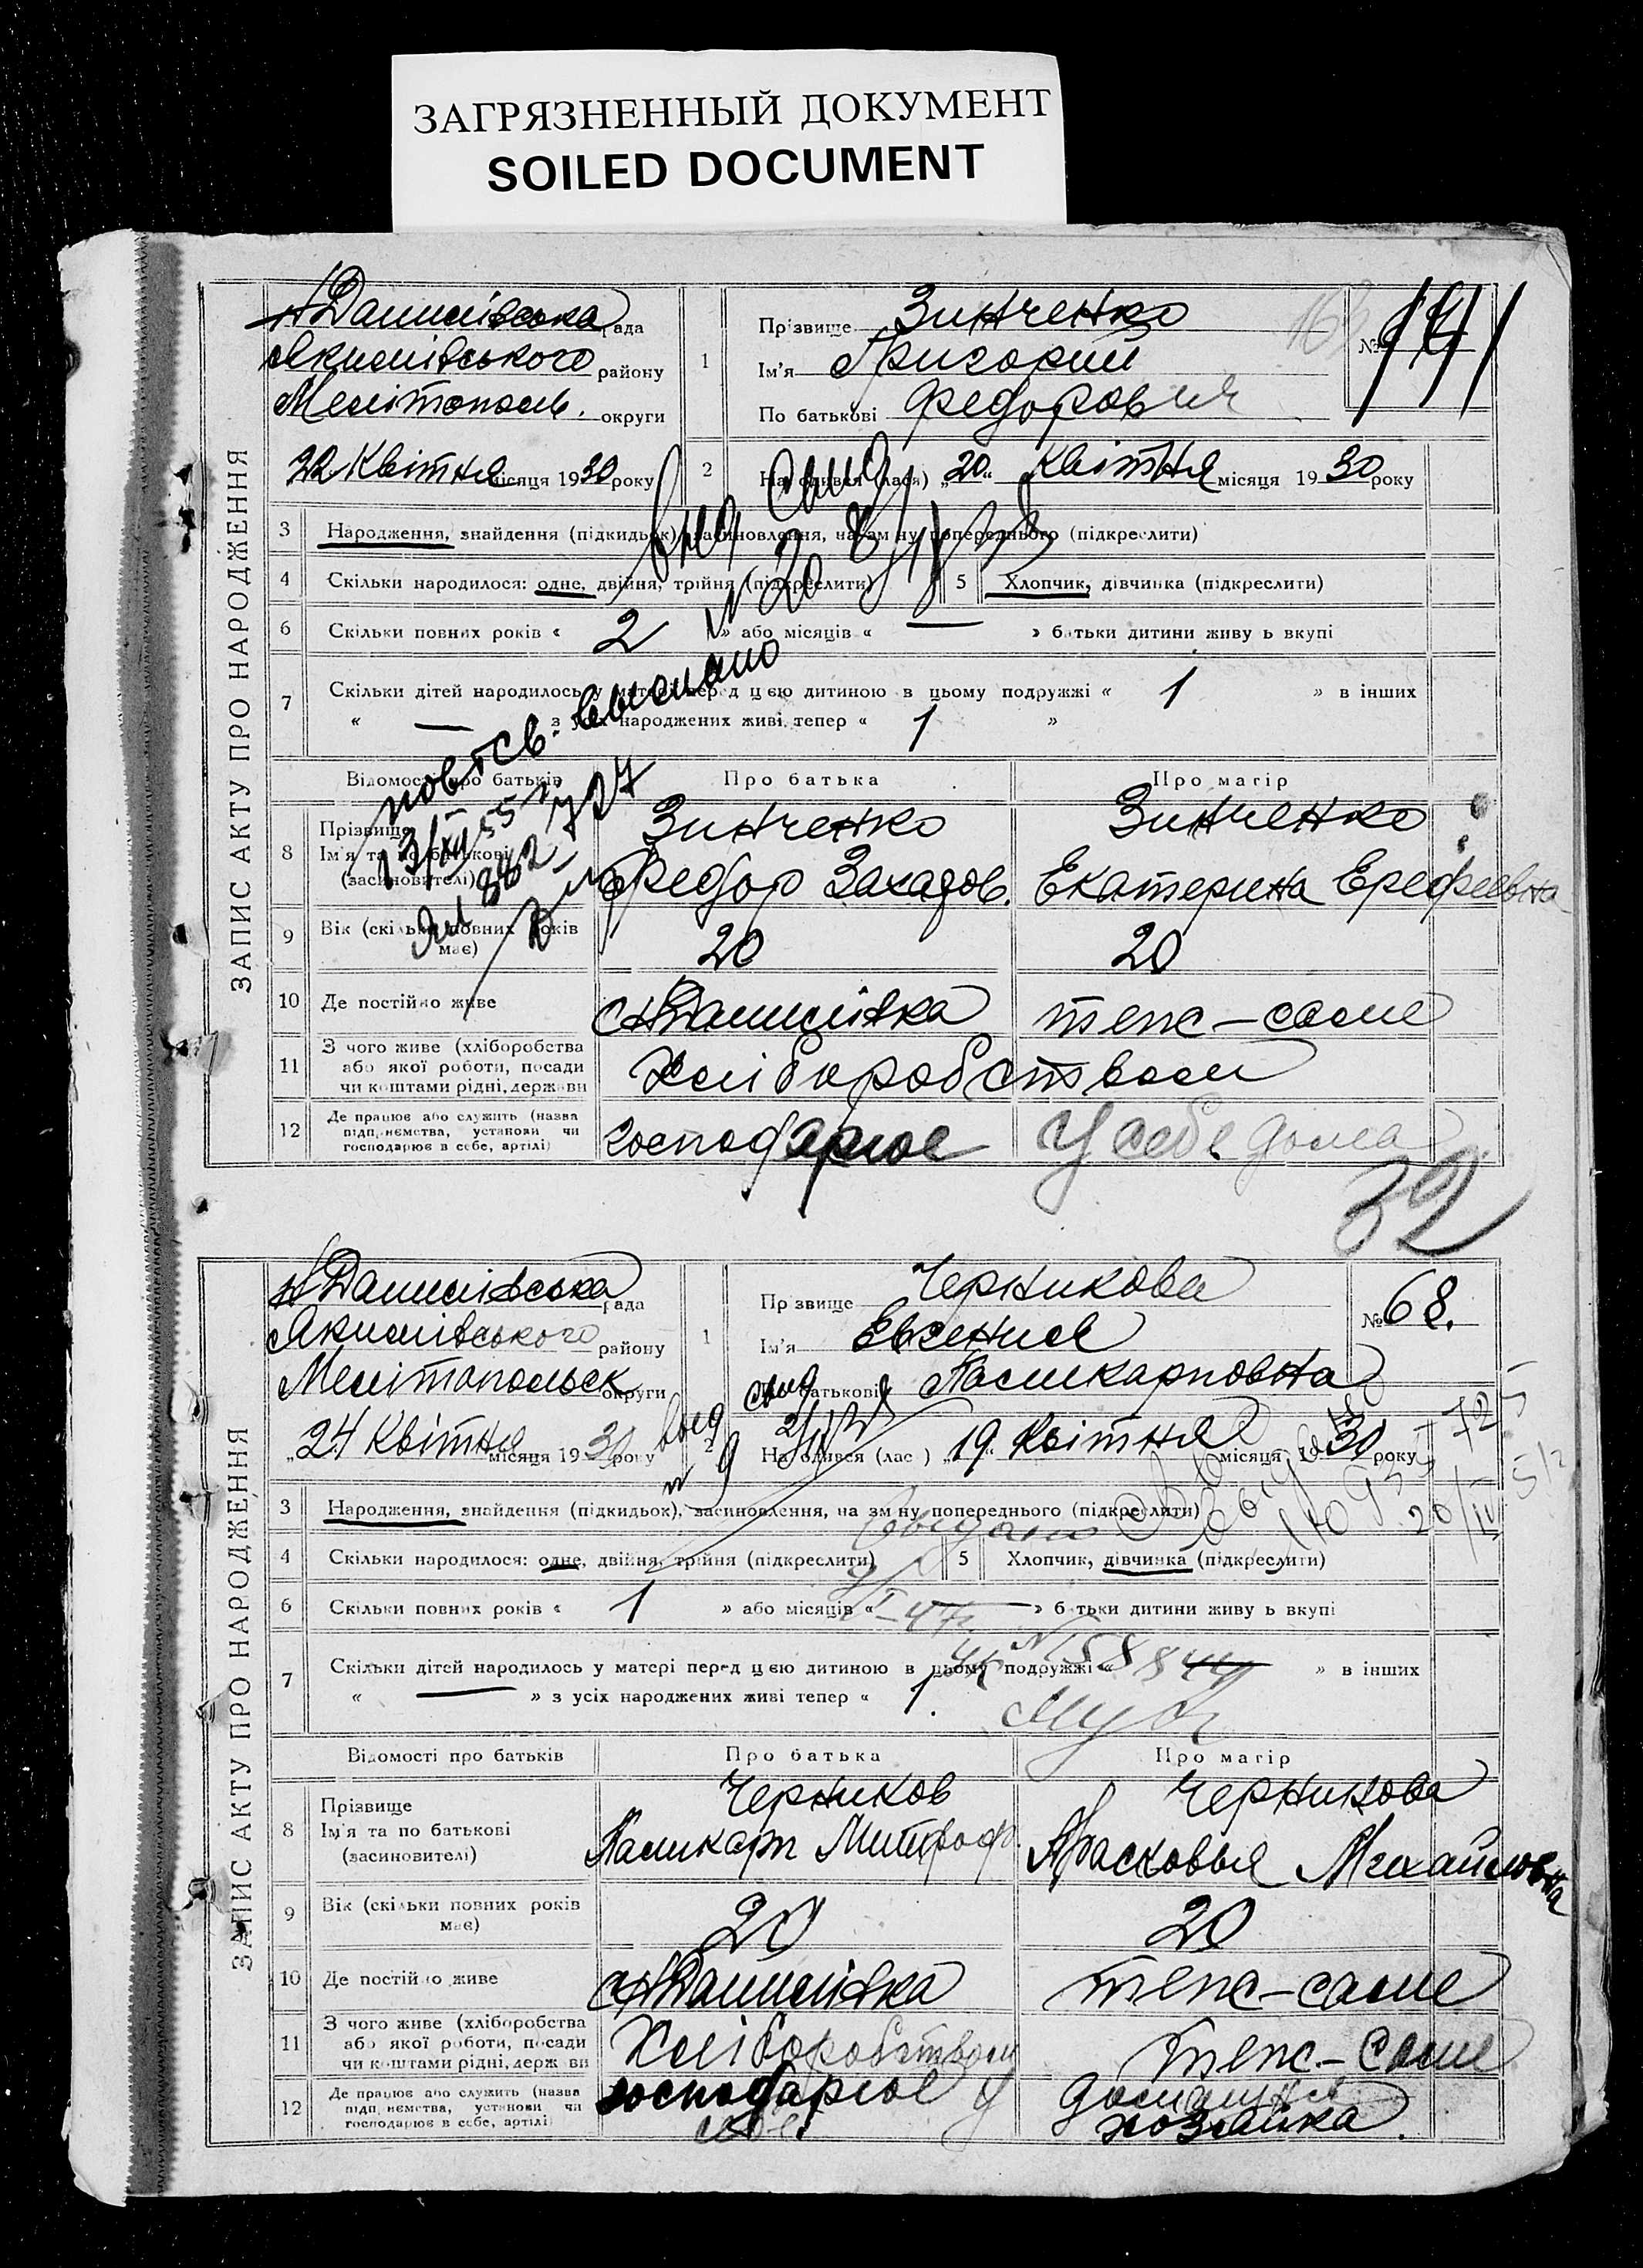 ЗАГРЯЗНЕННЫЙ ДОКУМЕНТ
SOILED DOCUMENT
ЗАПИС АКТУ ПРО НАРОДЖЕННЯ
Данилівська рада
Якимівського району
Мелітополь. округи
22 Квітня місяця 1930 року
1
Прізвище Зинченко
Ім'я Григорий
По батькові Федорович
№
2 Народився (лася) „20“ Квітня місяця 1930 року
3 Народження, знайдення (підкидьок), засиновлення, на зміну попереднього (підкреслити)
4 Скільки народилося: одне, двійня, трійня (підкреслити) 5 Хлопчик, дівчинка (підкреслити)
6 Скільки повних років « 2 » або місяців « — » батьки дитини живуть вкупі
7 Скільки дітей народилось у матері перед цією дитиною в цьому подружжі « 1 » в інших
« — » з усіх народжених живі тепер « 1 »
повт св. выслано
Відомості про батьків Про батька Про матір
8 Прізвище Ім'я та по батькові (засиновителі)
Зинченко Зинченко
Федор Захаров. Екатерина Ерефеевна
9 Вік (скільки повних років має) 20 20
10 Де постійно живе Данилівка теж-саме
11 З чого живе (хліборобства
або якої роботи, посади
чи коштами рідні, держави
Хліборобством
12 Де працює або служить (назва
підприємства, установи чи
господарює в себе, артілі)
господарює У себе дома
32
ЗАПИС АКТУ ПРО НАРОДЖЕННЯ
Данилівська рада
Якимівського району
Мелітопольск округи
„24 Квітня місяця 1930 року
1
Прізвище Черникова
Ім'я Евгения
По батькові Паликарповна
№ 68.
На одився (лас ) „19“ Квітня місяця 1930 року
3 Народження, знайдення (підкидьок), засиновлення, на зміну попереднього (підкреслити)
4 Скільки народилося: одне, двійня, трійня (підкреслити) 5 Хлопчик, дівчинка (підкреслити)
6 Скільки повних років « 1 » або місяців « — » батьки дитини живуть вкупі
7 Скільки дітей народилось у матері перед цією дитиною в цьому подружжі « — » в інших
« — » з усіх народжених живі тепер « 1
Відомості про батьків Про батька Про матір
8 Прізвище
Ім'я та по батькові
(засиновителі)
Черников Черникова
Паликарп Митроф. Прасковья Михайловна
9 Вік (скільки повних років має) 20 20
10 Де постійно живе Данилівка теж-саме
11 З чого живе (хліборобства
або якої роботи, посади
чи коштами рідні, держ ви
Хліборобством теж-саме
12 Де працює або служить (назва
підприємства, установи чи
господарює в себе, артілі)
господарює у себе домашня хозяйка.